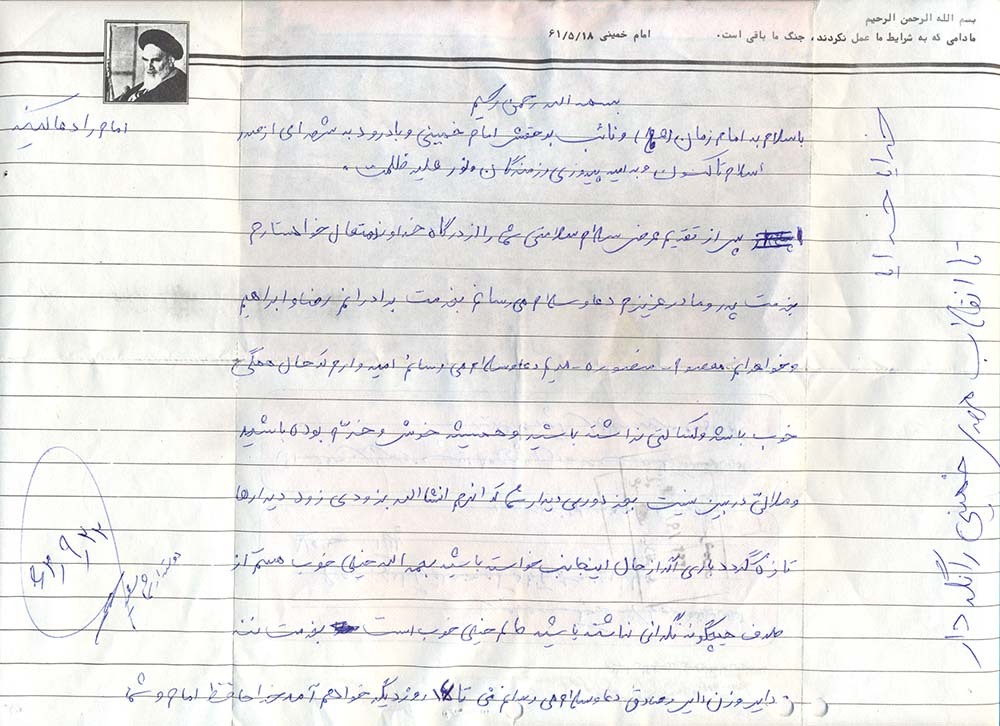 بسم الله الرحمن الرحیم
مادامی که به شرایط ما عمل نکردند، جنگ ما باقی است.
امام خمینی ۶۱/۵/۱۸
بسمه الله رحمن رحیم
باسلام به امام زمان (عج) و نائب برحقش امام خمینی و با درود به شهدای از صدر
اسلام تا کنون و به امید پیروزی رزمندگان و نور علیه ظلمت.
پس از تقدیم عرض سلام سلامتی شما را از درگاه خداوند متعال خواستارم
بخدمت پدر و مادر عزیزم دعا و سلام می رسانم بخدمت برادرانم رضا و ابراهیم
و خواهرانم معصومه - منصوره - مریم دعا و سلام می رسانم امیدوارم که حال همگی
خوب باشد و کسالتی نداشته باشید و همیشه خوش و خرّم بوده باشید
و ملالی در بین نیست بجز دوری دیدار شما که آنهم انشاالله بزودی زود دیدارها
تازه گردد باری اگر از حال اینجانب خواسته باشید بحمد الله خیلی خوب هستم از
طرف هیچگونه نگرانی نداشته باشید حالم خیلی خوب است بخدمت ننه
دعا و سلام می رسانم تا ۱۸ روز دیگر خواهم آمد خداحافظ امام و شما
امام را دعا کنید
خدایا خدایا
تا انقلاب مهدی خمینی را نگه دار